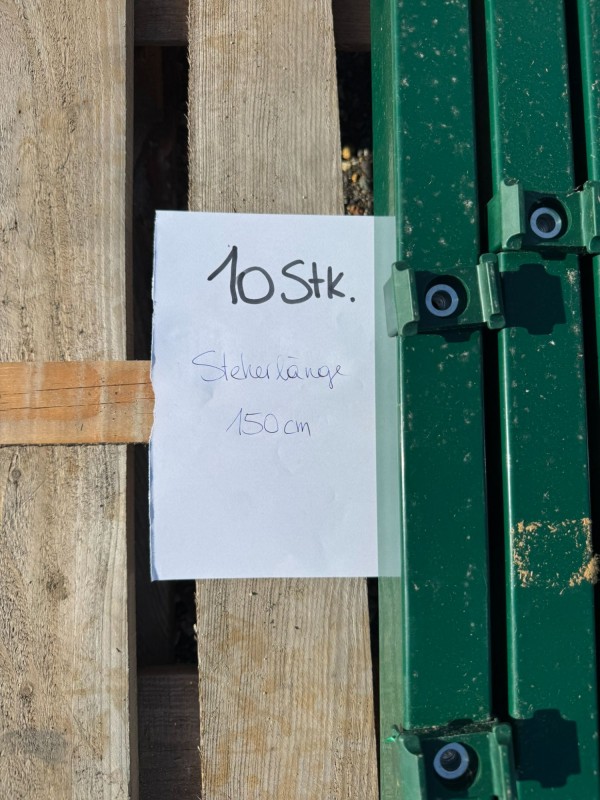 10 Stk.
Steherlänge
150cm